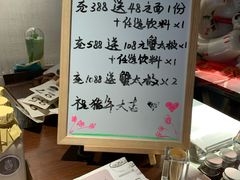 充388送48之面1份
+任选饮料×1
充588送108之蟹太极×1
+任选饮料×1
充1088送蟹太极×2
祝猴年大吉